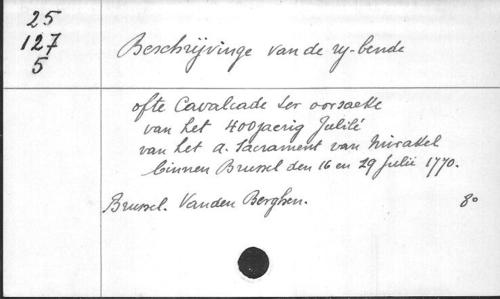 25
127
5
Beschrijvinge van de ry-bende
ofte Cavalcade ter oorsaeke
van het 400jaerig Jubilé
van het a. Sacrament van Mirakel
binnen Brussel den 16 en 29 Julii 1770.
Brussel. Vanden Berghen.
8o